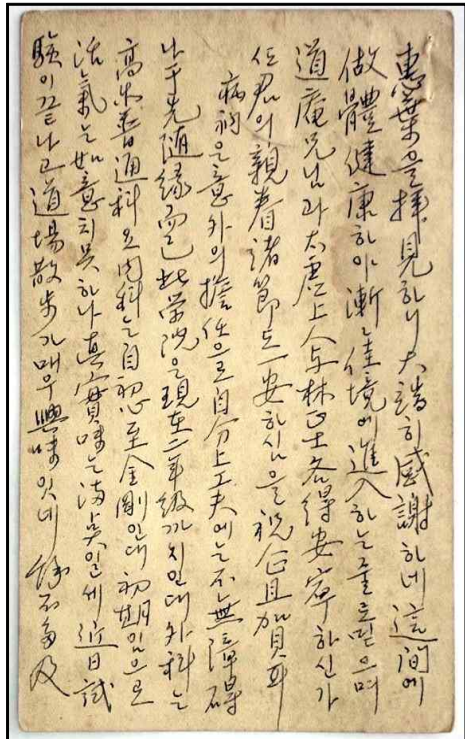 惠葉을拜見하니大端히感謝하네這間에
做體健康하야漸〻佳境에進入하는줄로믿으며
道庵兄님과太虛上人与林正士各得安寧하신가
任君의親眷諸節도一安하심을祝合且加賀耳
病衲은意外의擔任으로自分上工夫에는不無障碍
나于先隨緣 此学院은現在二年級까지인대外科는
高木普通科요内科는自初心至金剛인대初期임으로
活氣는如意치못하나真實味는満点일세近日試
驗이끝나고道場散步가매우興味잇네 餘不多及